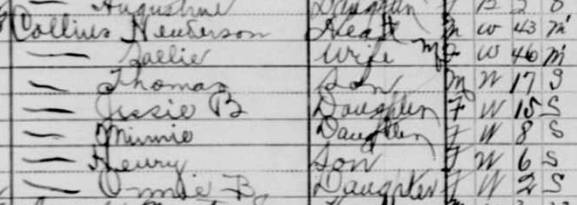 Augustine Daughter
Collins Henderson Head M W 43 M
— Sallie Wife F W 46 M
— Thomas Son M W 17 S
— Jessie B Daughter F W 15 S
— Minnie Daughter F W 8 S
— Henry Son W 6 S
— B Daughter F W 2 S